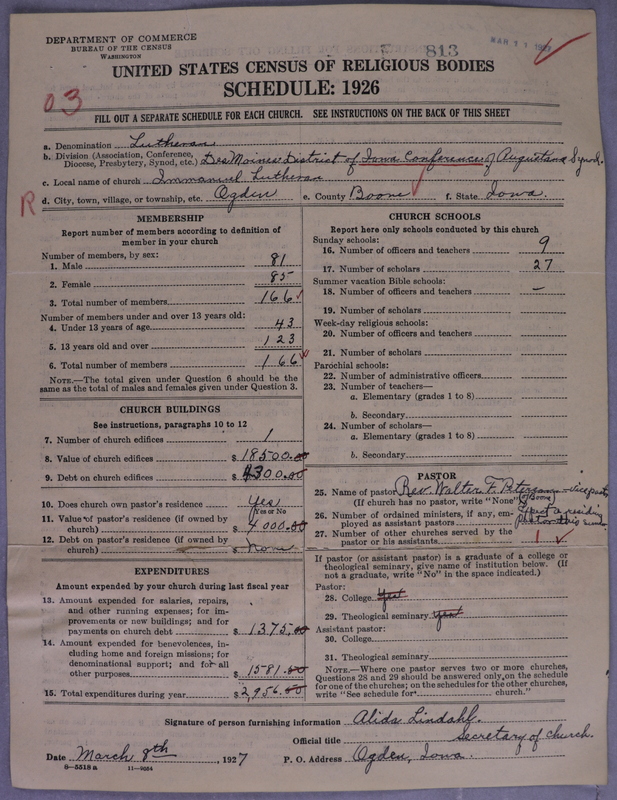 DEPARTMENT OF COMMERCE
BUREAU OF THE CENSUS
WASHINGTON
813
MAR 11 1927
UNITED STATES CENSUS OF RELIGIOUS BODIES
SCHEDULE: 1926
03
FILL OUT A SEPARATE SCHEDULE FOR EACH CHURCH. SEE INSTRUCTIONS ON THE BACK OF THIS SHEET
a. Denomination Lutheran
b. Division (Association, Conference, Diocese, Presbytery, Synod, etc.) Des Moines District of Iowa Conference of Augustana Synod.
c. Local name of church Immanuel Lutheran
R
d. City, town, village, or township, etc. Ogden e. County Boone f. State Iowa.
MEMBERSHIP
Report number of members according to definition of
member in your church
Number of members, by sex:
1. Male 81
2. Female 85
3. Total number of members 166
Number of members under and over 13 years old:
4. Under 13 years of age 43
5. 13 years old and over 123
6. Total number of members 166
NOTE.—The total given under Question 6 should be the
same as the total of males and females given under Question 3.
CHURCH BUILDINGS
See instructions, paragraphs 10 to 12
7. Number of church edifices 1
8. Value of church edifices $ 18500.00
9. Debt on church edifices $ 4300.00
10. Does church own pastor's residence Yes
Yes or No
11. Value of pastor's residence (if owned by
church) $ 4000.00
12. Debt on pastor's residence (if owned by
church) $ None
EXPENDITURES
Amount expended by your church during last fiscal year
13. Amount expended for salaries, repairs,
and other running expenses; for im-
provements or new buildings; and for
payments on church debt $ 1375.00
14. Amount expended for benevolences, in-
cluding home and foreign missions; for
denominational support; and for all
other purposes $ 1581.00
15. Total expenditures during year $ 2,956.00
CHURCH SCHOOLS
Report here only schools conducted by this church
Sunday schools:
16. Number of officers and teachers 9
17. Number of scholars 27
Summer vacation Bible schools:
18. Number of officers and teachers —
19. Number of scholars
Week-day religious schools:
20. Number of officers and teachers
21. Number of scholars
Parochial schools:
22. Number of administrative officers
23. Number of teachers—
a. Elementary (grades 1 to 8)
b. Secondary
24. Number of scholars—
a. Elementary (grades 1 to 8)
b. Secondary
PASTOR
25. Name of pastor Rev. Walter F. Peterson—vice pastor
(If church has no pastor, write "None") (of Boone)
26. Number of ordained ministers, if any, em- Expect a residing
ployed as assistant pastors pastor this
27. Number of other churches served by the
pastor or his assistants 1
If pastor (or assistant pastor) is a graduate of a college or
theological seminary, give name of institution below. (If
not a graduate, write "No" in the space indicated.)
Pastor:
28. College Yes
29. Theological seminary Yes
Assistant pastor:
30. College
31. Theological seminary
NOTE.—Where one pastor serves two or more churches,
Questions 28 and 29 should be answered only on the schedule
for one of the churches; on the schedules for the other churches,
write "See schedule for church."
Signature of person furnishing information Alida Lindahl.
Official title Secretary of church.
Date March 8th, 1927 P. O. Address Ogden, Iowa.
8—5518 a 11—9084